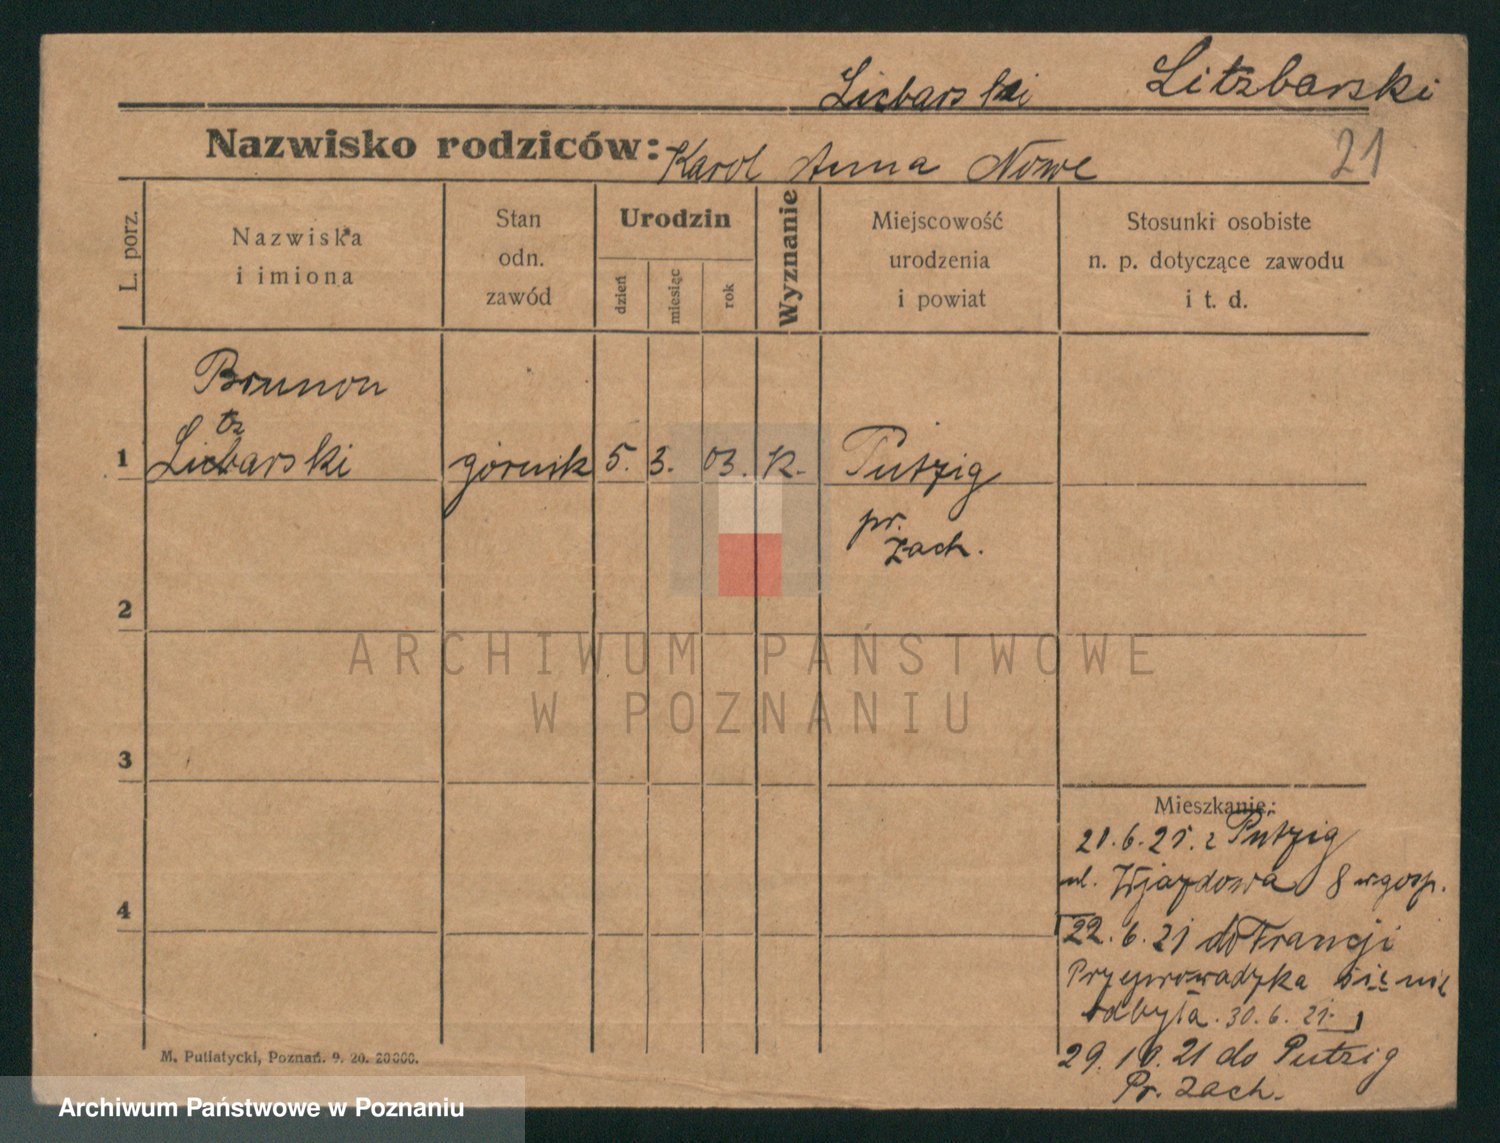 Licbarski Litzbarski
Nazwisko rodziców: Karol Anna Nowe 21
L. porz.
Nazwiska
i imiona
Stan
odn.
zawód
Urodzin
dzień
miesiąc
rok
Wyznanie
Miejscowość
urodzenia
i powiat
Stosunki osobiste
n. p. dotyczące zawodu
i t. d.
Brunon
tz
1 Licbarski górnik 5. 3. 03. K. Putzig
pr.
Zach.
2
3
4
Mieszkanie:
21.6.21. z Putzig
ul. Wjazdowa 8 w gosp.
22.6.21 do Francji
Przeprowadzka się nie
odbyła. 30.6.21.
29.10.21 do Putzig
Pr. Zach.
M. Putiatycki, Poznań. 9. 20. 20000.
ARCHIWUM PAŃSTWOWE
W POZNANIU
Archiwum Państwowe w Poznaniu